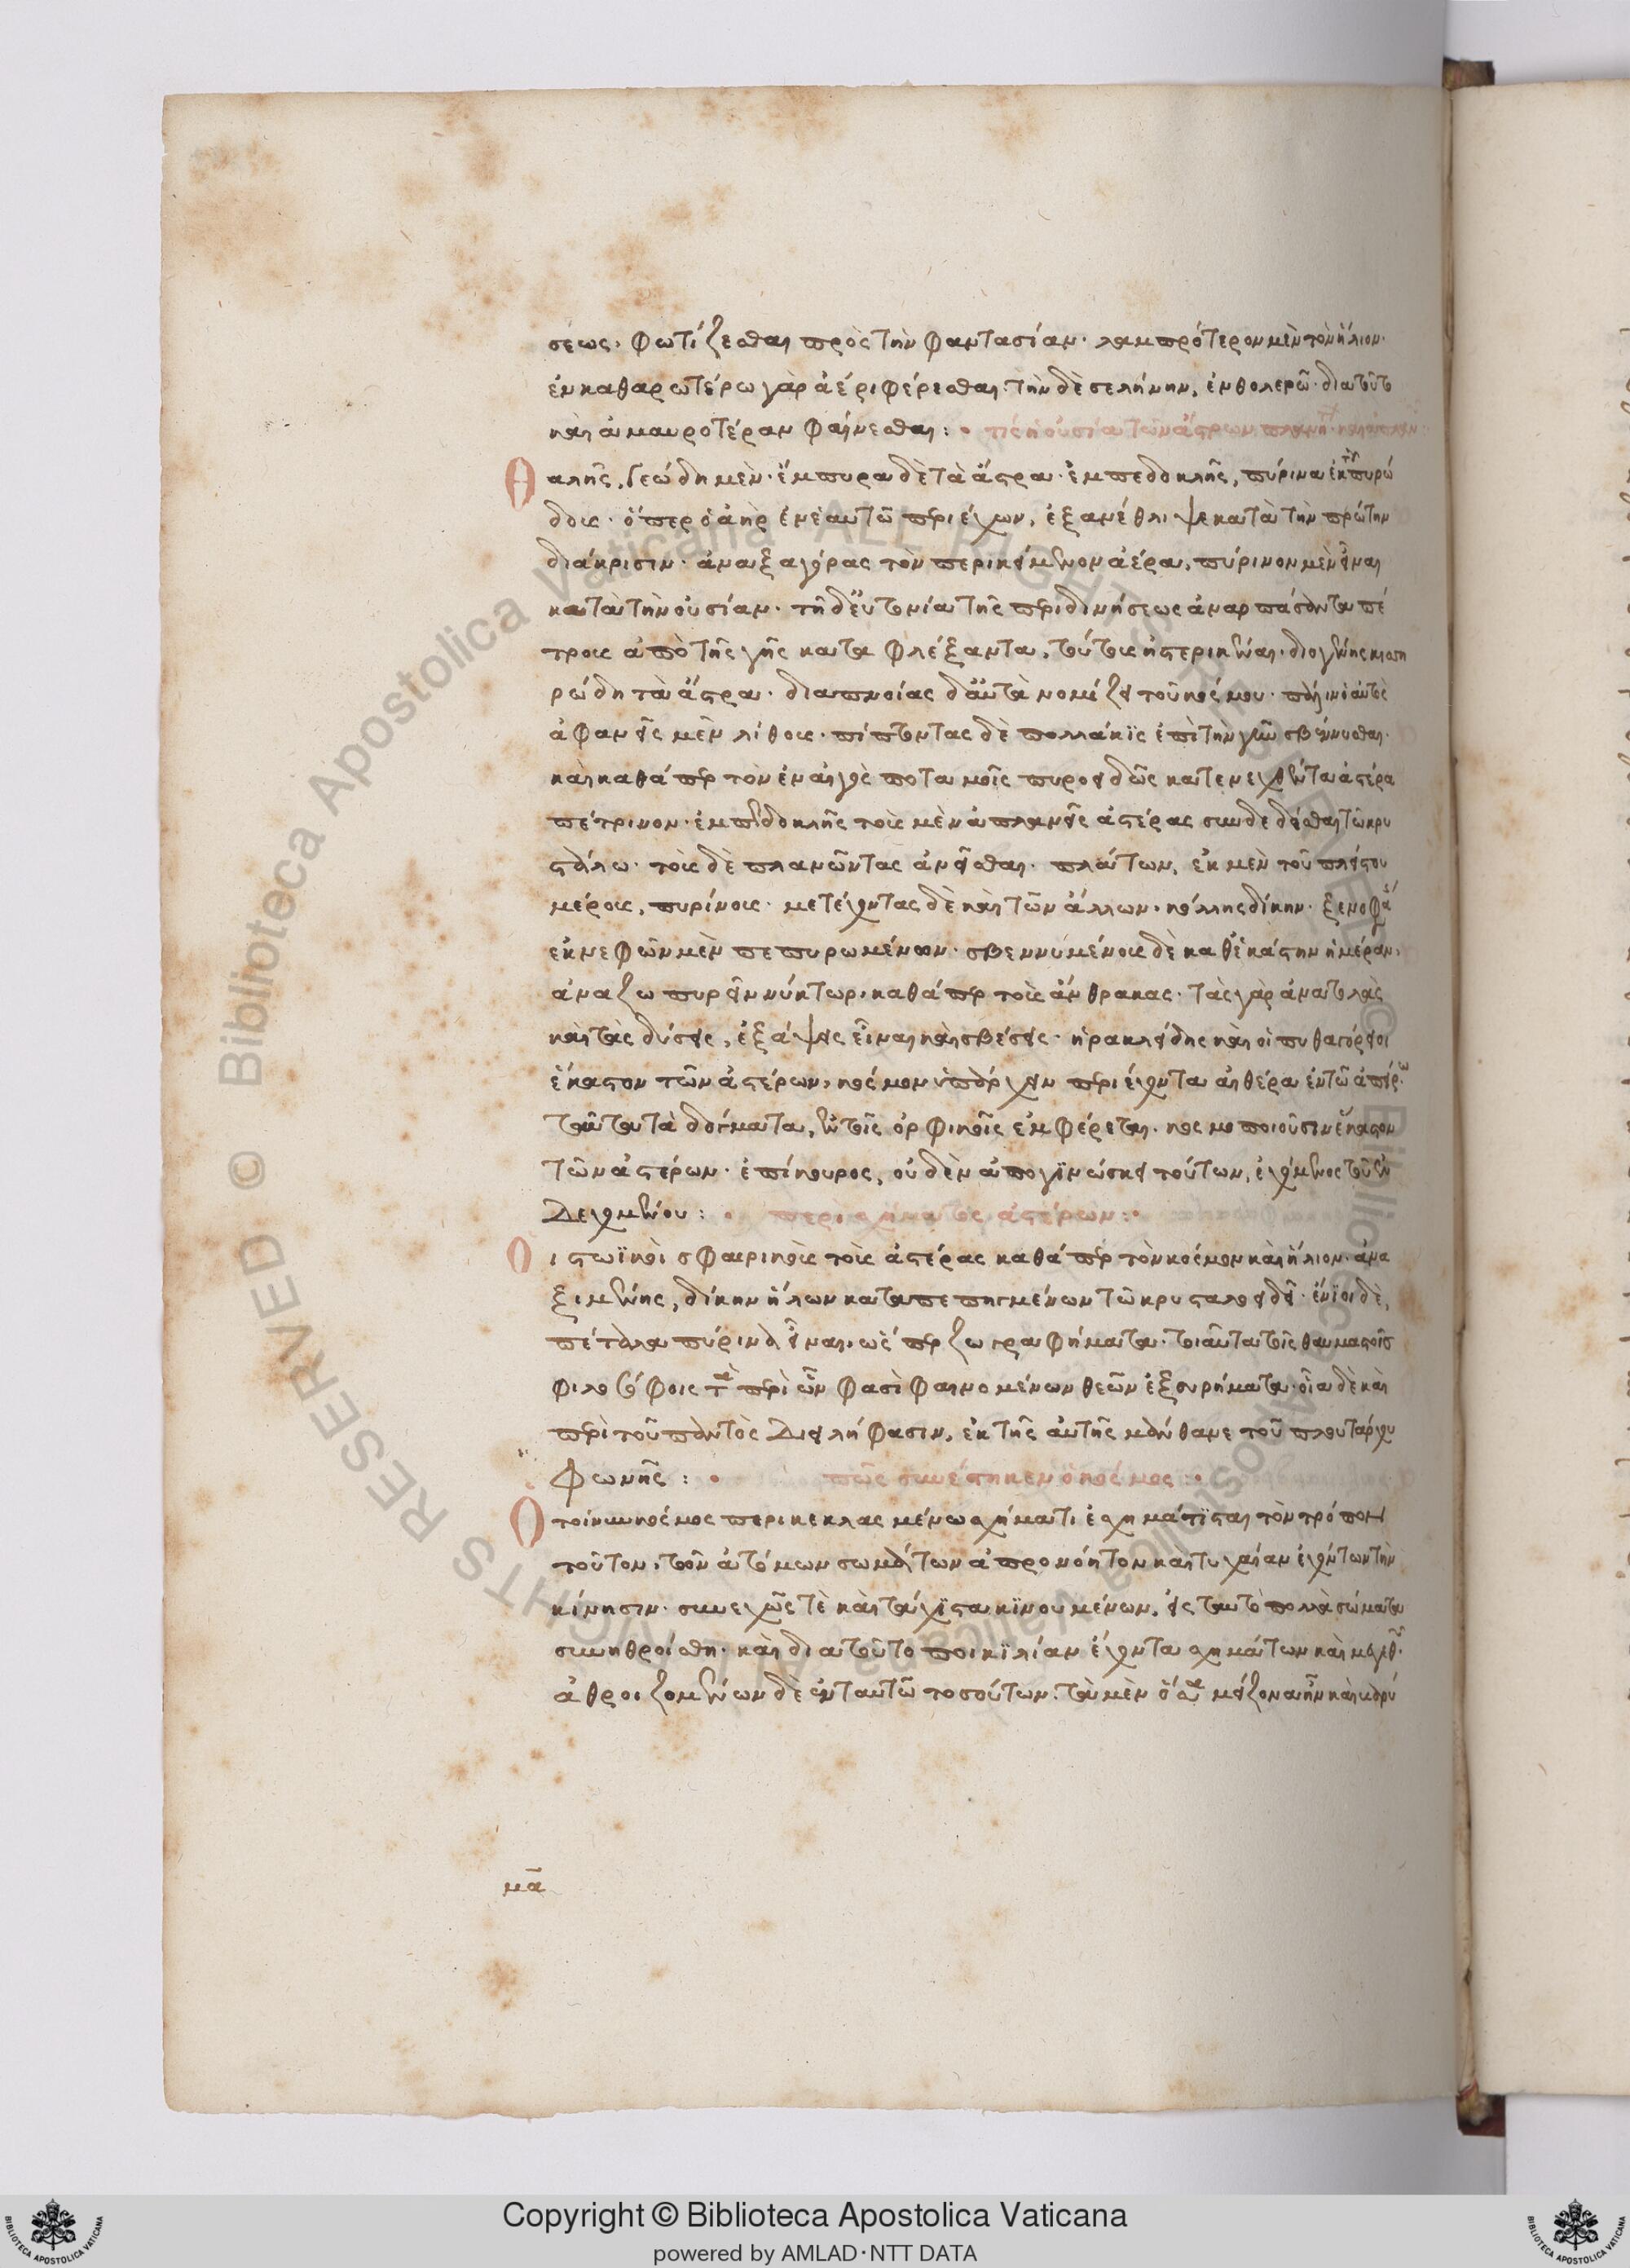 σεως· φωτίζεσθαι πρὸς τὴν φαντασίαν· λαμπρότερον μὲν τὸν ἥλιον·
ἐν καθαρωτέρω γὰρ ἀέρι φέρεσθαι· τὴν δὲ σελήνην, ἐν θολερῶ· διατοῦτο
καὶ ἀμαυροτέραν φαίνεσθαι: • τίς ἡ οὐσία τῶν ἄστρων
Θαλῆς, γεώδη μὲν· ἔμπυρα δὲ τὰ ἄστρα· ἐμπεδοκλῆς, πύρινα ἐκ τοῦ πυρώ
δους· ὅπερ ὁ ἀὴρ ἐν ἑαυτῶ περιέχων, ἐξανέθλιψε κατὰ τὴν πρώτην
διάκρισιν· ἀναξαγόρας τὸν περικείμενον ἀέρα, πύρινον μὲν εἶναι
κατὰ τὴν οὐσίαν· τῆ δ' εὐτονία τῆς περιδινήσεως ἀναρπάσαντα πέ
τρους ἀπὸ τῆς γῆς καταφλέξαντα, τούτους ἠστερικέναι· διογένης κισση
ρώδη τὰ ἄστρα· διαπνοίας δ' αὐτὰ νομίζει τοῦ κόσμου· πάλιν ὁ αὐτὸς
ἀφανεῖς μὲν λίθους· πίπτοντας δὲ πολλάκϊς ἐπὶ τὴν γῆν σβέννυσθαι·
καὶ καθάπερ τὸν ἐν αἰγὸς ποταμοῖς πυροειδῶς κατενεχθέντα ἀστέρα
πέτρινον· ἐμπεδοκλῆς τοὺς μὲν ἀπλανεῖς ἀστέρας συνδεδέσθαι τῶ κρυ
στάλω· τοὺς δὲ πλανῶντας ἀνεῖσθαι· πλάτων, ἐκ μὲν τοῦ πλείστου
μέρους, πυρίνους· μετέχοντας δὲ καὶ τῶν ἄλλων· κόλλης δίκην· ξενοφά
ἐκ νεφῶν μὲν πεπυρωμένων· σβεννυμένους δὲ καθ' ἑκάστην ἡμέραν,
ἀναζωπυρεῖν νύκτωρ, καθάπερ τοὺς ἄνθρακας· τὰς γὰρ ἀνατολὰς
καὶ τὰς δύσεις, ἐξάψεις εἶναι καὶ σβέσεις· ἡρακλείδης καὶ οἱ πυθαγόρειοι
ἕκαστον τῶν ἀστέρων, κόσμον ὑπάρχειν περιέχοντα αἰθέρα ἐν τῶ ἀπείρω
ταῦτα τὰ δόγματα, ἐν τοῖς ὀρφικοῖς ἐμφέρεται· κοσμοποιοῦσιν ἕκαστον
τῶν ἀστέρων· ἐπίκουρος, οὐδὲν ἀπογϊνώσκει τούτων, ἐχόμενος τοῦ ἐν
δεχομένου: • περὶ σχήματος ἀστέρων: •
Οι στωϊκοὶ σφαιρικοὺς τοὺς ἀστέρας καθάπερ τὸν κόσμον καὶ ἥλιον· ἀνα
ξιμένης, δίκην ἥλων καταπεπηγμένων τῶ κρυσταλοειδεῖ· ἔνϊοι δὲ,
πέταλα πύρινα εἶναι, ὡσπερ ζωγραφήματα· τοιαῦτα τοῖς θαυμαστοῖς
φιλοσόφοις τὰ περὶ ὧν φασὶ φαινομένων θεῶν ἐξευρήματα· οἷα δὲ καὶ
περὶ τοῦ παντὸς διειλήφασιν, ἐκ τῆς αὐτῆς μάνθανε τοῦ πλουτάρχου
φωνῆς: • πῶς συνέστηκεν ὁ κόσμος: •
Ο τοίνυν κόσμος περικεκλασμένω σχήματι ἐσχημάτϊσται τὸν τρόπον
τοῦτον, τῶν ἀτόμων σωμάτων ἀπρονόητον καὶ τυχαίαν ἐχόντων τὴν
κίνησιν· συνεχῶς τὲ καὶ τάχϊστα κϊνουμένων, εἰς ταυτὸ πολλὰ σώματα
συνηθροίσθη· καὶ διατοῦτο ποικϊλίαν ἔχοντα σχημάτων καὶ μεγεθῶν·
ἀθροιζομένων δὲ ἐν ταυτῶ τοσούτων, τὰ μὲν ὅσα μείζονα ἦν καὶ βαρύ
μα
Copyright © Biblioteca Apostolica Vaticana
powered by AMLAD·NTT DATA